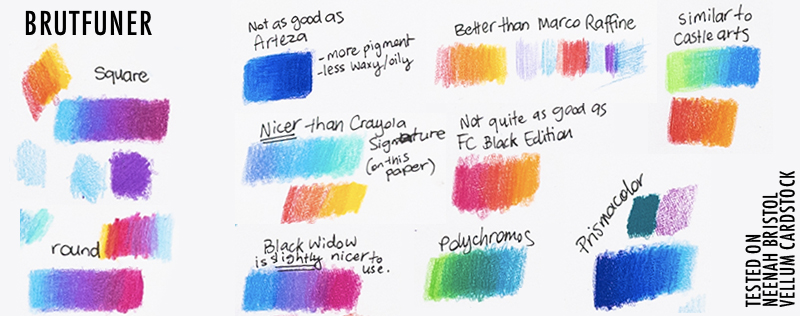 BRUTFUNER
Square
round
Not as good as
Arteza
-more pigment
-less waxy/oily
Nicer than Crayola
Signature
(on this
paper)
Black Widow
is slightly nicer to
use.
Better than Marco Raffine
Not quite as good as
FC Black Edition
Polychromos
Similar to
Castle arts
Prismacolor
TESTED ON
NEENAH BRISTOL
VELLUM CARDSTOCK